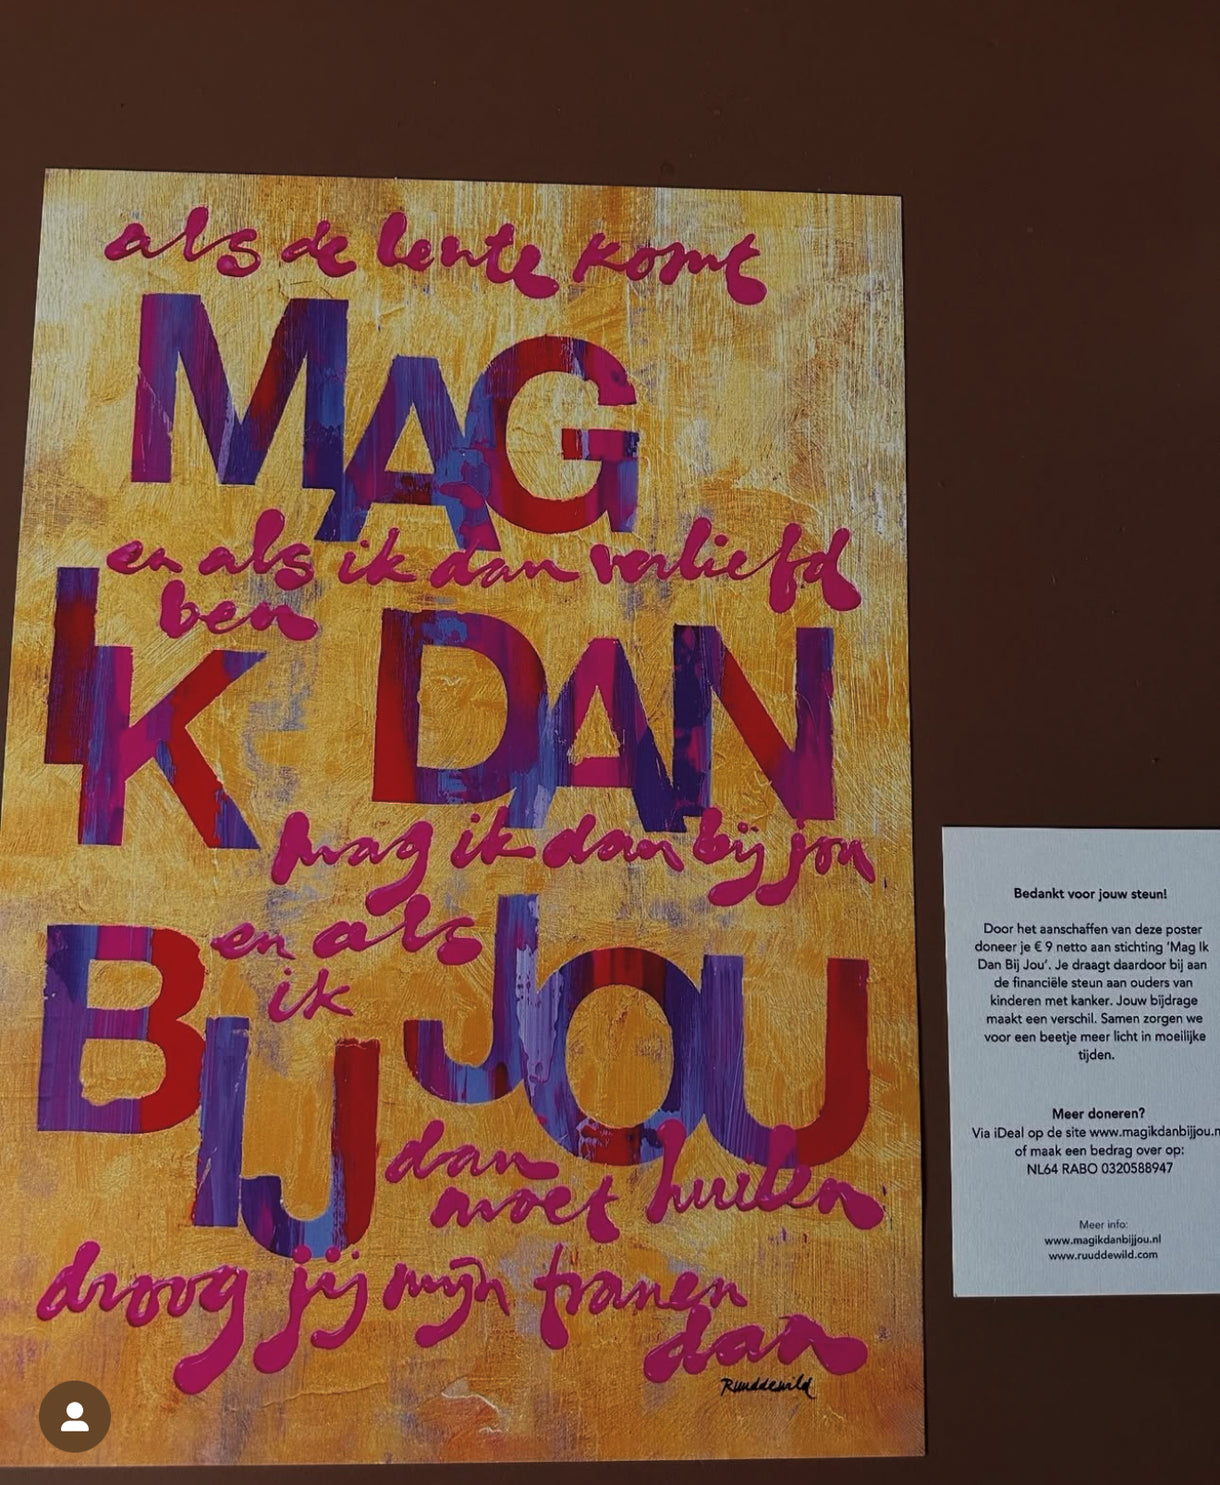 als de lente komt
MAG
en als ik dan verliefd
ben
IK DAN
mag ik dan bij jou
BIJ JOU
en als
ik
dan
moet huilen
droog jij mijn tranen
dan
Ruuddewild
Bedankt voor jouw steun!
Door het aanschaffen van deze poster
doneer je € 9 netto aan stichting ‘Mag Ik
Dan Bij Jou’. Je draagt daardoor bij aan
de financiële steun aan ouders van
kinderen met kanker. Jouw bijdrage
maakt een verschil. Samen zorgen we
voor een beetje meer licht in moeilijke
tijden.
Meer doneren?
Via iDeal op de site www.magikdanbijjou.n
of maak een bedrag over op:
NL64 RABO 0320588947
Meer info:
www.magikdanbijjou.nl
www.ruuddewild.com